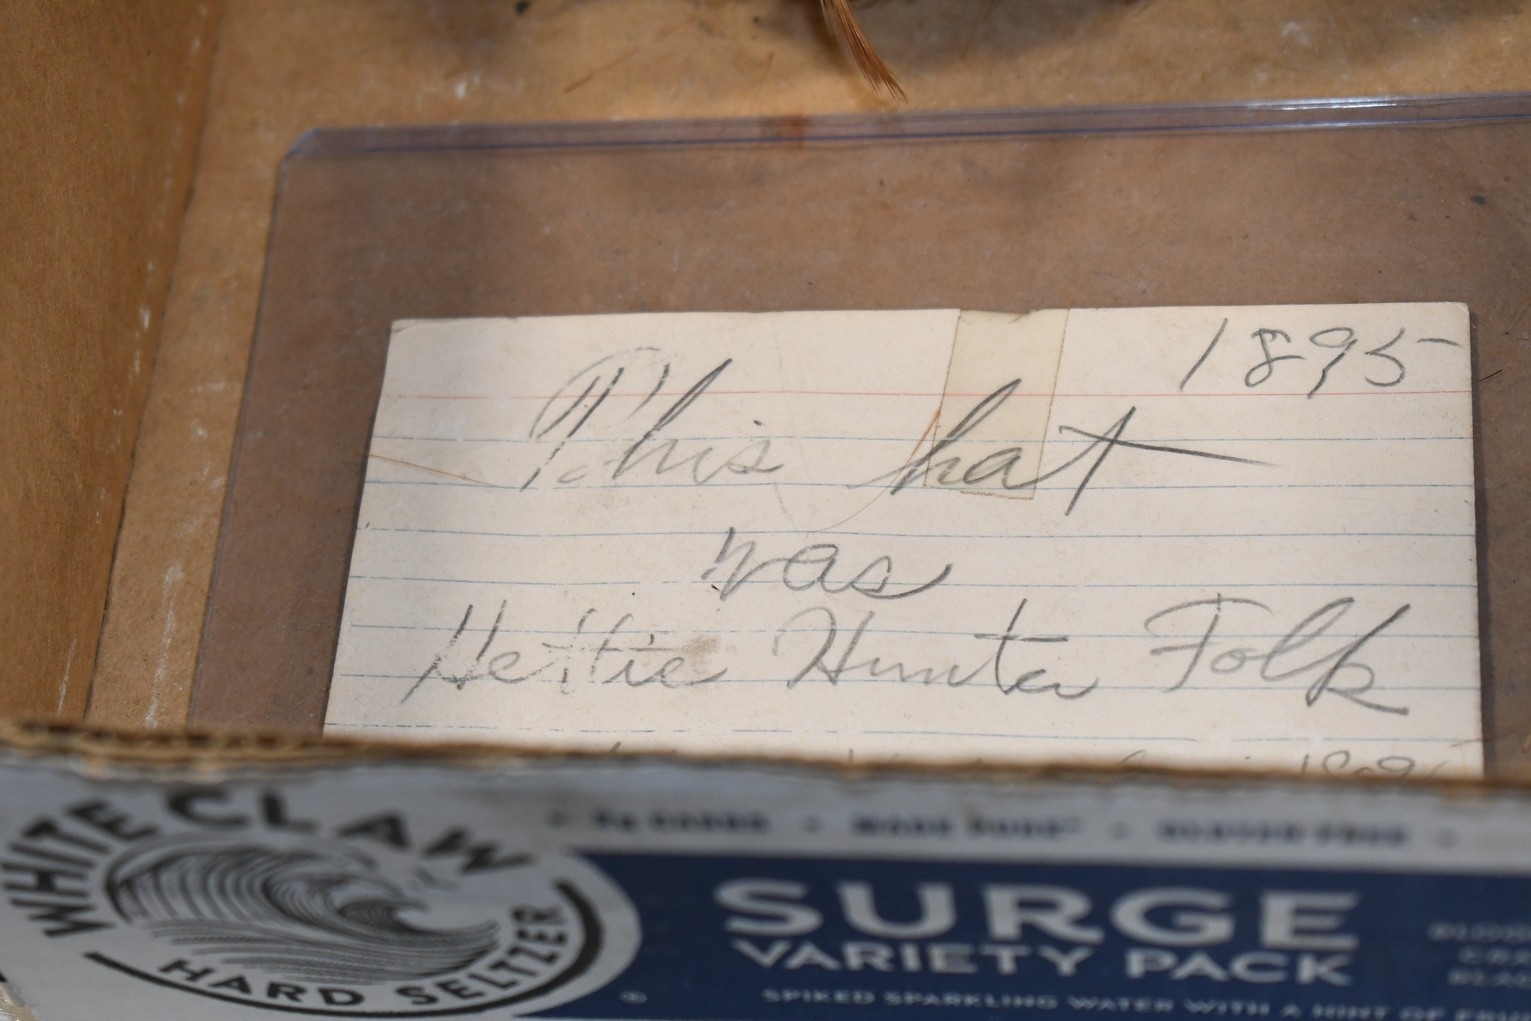 1895
This hat
was
Hettie Hunter Folk
1895
WHITE CLAW
HARD SELTZER
SURGE
VARIETY PACK
SPIKED SPARKLING WATER WITH A HINT OF